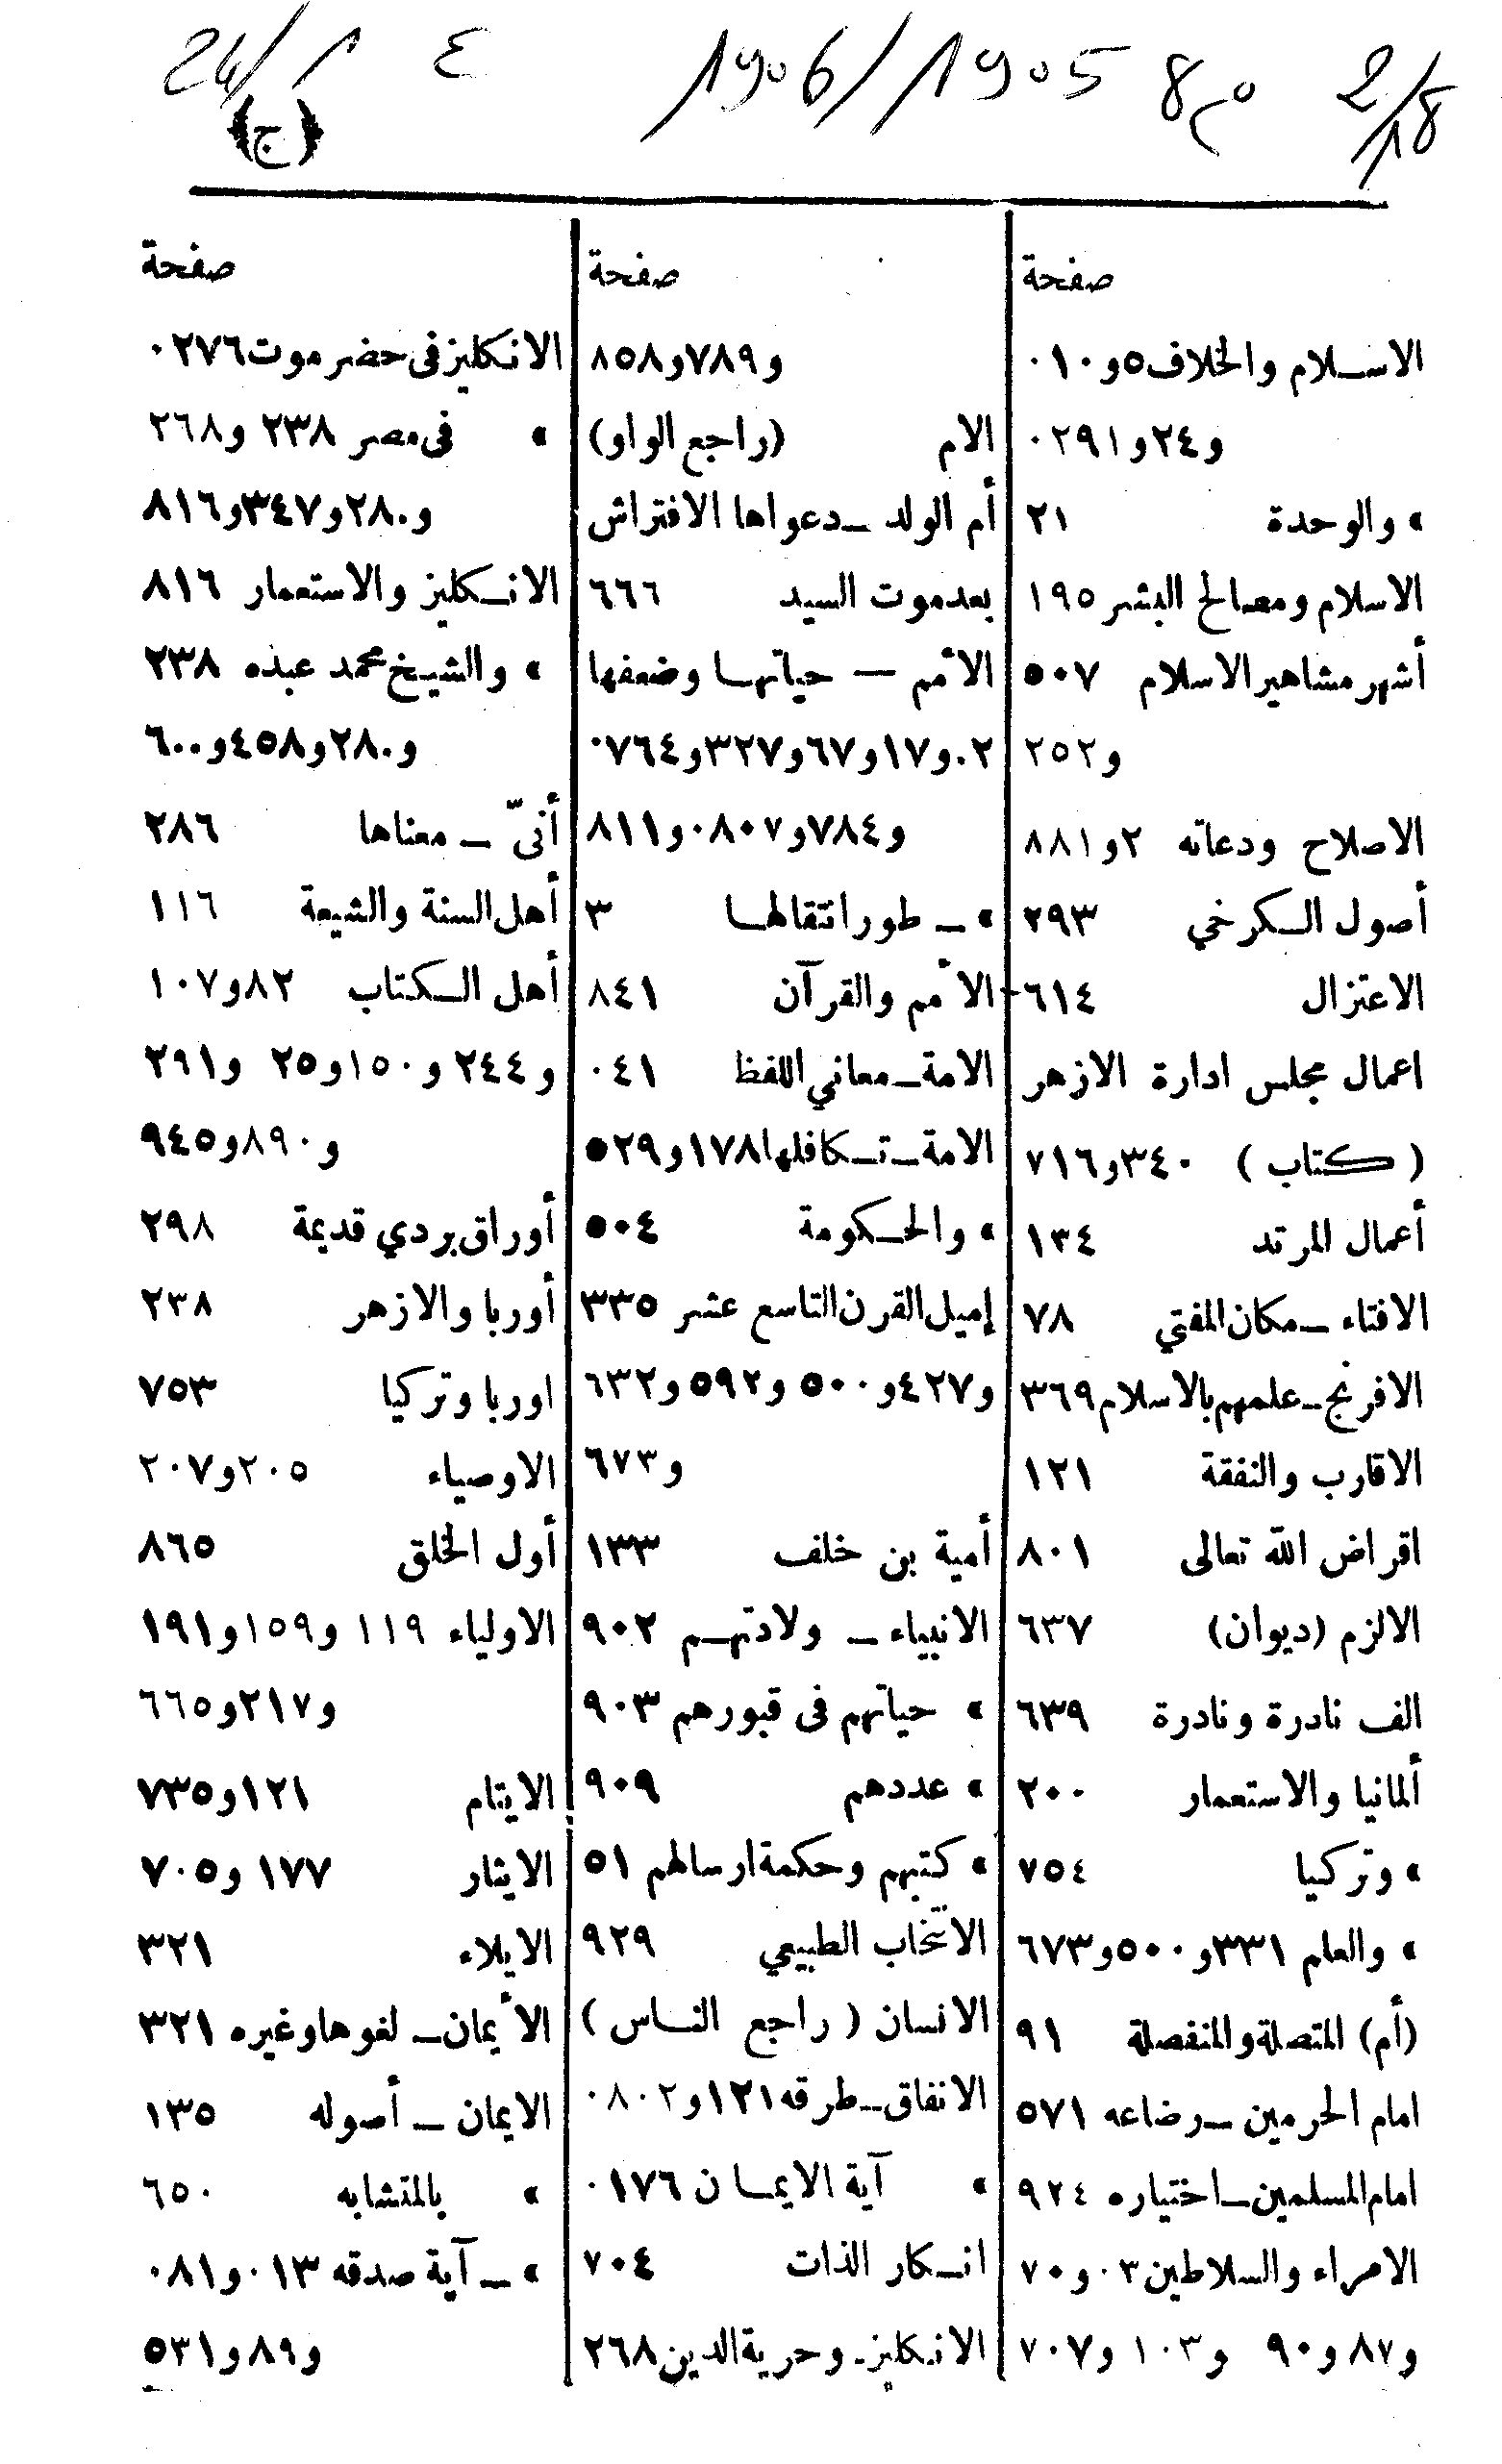 24/1 ع 1906/1905 م8 2/18
(ج)
صفحة
الاسلام والخلاف ٥و١٠٠
و٢٤و٢٩١٠
» والوحدة ٢١
الاسلام ومصالح البشر ١٩٥
أشهر مشاهير الاسلام ٥٠٧
و٢٥٢
الاصلاح ودعاته ٢و٨٨١
أصول الكرخي ٢٩٣
الاعتزال ٦١٤
اعمال مجلس ادارة الازهر
(كتاب) ٣٤٠و٧١٦
أعمال المرتد ١٣٤
الافتاء ــ مكان المفتي ٧٨
الافرنج ــ علمهم بالاسلام ٣٦٩
الاقارب والنفقة ١٢١
اقراض الله تعالى ٨٠١
الالزم (ديوان) ٦٣٧
الف نادرة ونادرة ٦٣٩
ألمانيا والاستعمار ٢٠٠
» وتركيا ٧٥٤
» والعلم ٣٣١و٥٠٠و٦٧٣
(أم) المتصلة والمنفصلة ٩١
امام الحرمين ــ رضاعه ٥٧١
امام المسلمين ــ اختياره ٩٢٤
الامراء والسلاطين ٠٣و٧٠
و٨٧ و٩٠ و١٠٣ و٧٠٧
صفحة
و٧٨٩و٨٥٨
الام (راجع الواو)
أم الولد ــ دعواها الافتراش
بعد موت السيد ٦٦٦
الأمم — حياتها وضعفها
٠٢و١٧و٦٧و٣٢٧و٧٦٤٠
و٧٨٤و٨٠٧٠و٨١١
» ــ طور انتقالها ٣
الأمم والقرآن ٨٤١
الامة ــ معاني اللفظ ٠٤١
الامة ــ تكافلها ١٧٨و٥٢٩
» والحكومة ٥٠٤
إميل القرن التاسع عشر ٣٣٥
و٤٢٧و٥٠٠ و٥٩٢و٦٣٢
و٦٧٣
أمية بن خلف ١٣٣
الانبياء ــ ولادتهم ٩٠٢
» حياتهم فى قبورهم ٩٠٣
» عددهم ٩٠٩
» كتبهم وحكمة ارسالهم ٥١
الانتخاب الطبيعي ٩٢٩
الانسان (راجع الناس)
الانفاق ــ طرقه ١٢١و٨٠٢٠
» آية الايمان ١٧٦٠
انكار الذات ٧٠٤
الانكليز ــ وحرية الدين ٢٦٨
صفحة
الانكليز فى حضرموت ٢٧٦٠
» فى مصر ٢٣٨ و٢٦٨
و٢٨٠و٣٤٧و٨١٦
الانكليز والاستعمار ٨١٦
» والشيخ محمد عبده ٢٣٨
و٢٨٠و٤٥٨و٦٠٠
أنىّ ــ معناها ٢٨٦
أهل السنة والشيعة ١١٦
أهل الكتاب ٨٢و١٠٧
و٢٤٤ و١٥٠و٢٥ و٢٩١
و٨٩٠و٩٤٥
أوراق بردي قديمة ٢٩٨
أوربا والازهر ٢٣٨
اوربا وتركيا ٧٥٣
الاوصياء ٢٠٥و٢٠٧
أول الخلق ٨٦٥
الاولياء ١١٩ و١٥٩و١٩١
و٢١٧و٦٦٥
الايتام ١٢١و٧٣٥
الايثار ١٧٧ و٧٠٥
الايلاء ٣٢١
الأيمان ــ لغوها وغيره ٣٢١
الايمان ــ أصوله ١٣٥
» بالمتشابه ٦٥٠
» ــ آية صدقه ٠١٣و٠٨١
و٨٩و٥٣١